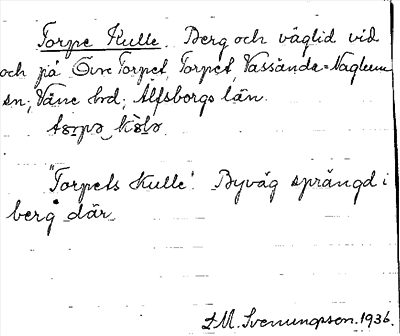 Torpe Kulle. Berg och väglid vid
och på Övre Torpet, Torpet, Vassända-Naglum
sn; Väne hd; Älfsborgs län.
"Torpets Kulle". Byväg sprängd i
berg där.
D.M. Svenungsson. 1936.